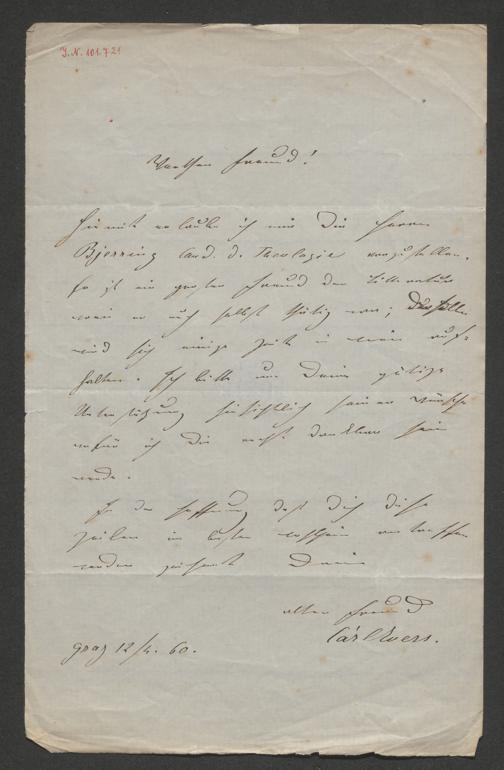 I.N. 101.721
Werther Freund!
Hiermit erlaube ich mir Dir Herrn
Bjerring Cand. d. Theologie vorzustellen.
Er ist ein großer Freund der Litteratur
worin er auch selbst thätig war; Derselbe
wird sich einige Zeit in Wien auf-
halten. Ich bitte um Deine gütige
Unterstützung hinsichtlich seiner Wünsche
wofür ich Dir recht dankbar sein
werde.
In der Hoffnung daß Dich diese
Zeilen im besten Wohlsein antreffen
werden zeichnet Dein
alter Freund
Carl Evers.
Graz 12/4. 60.